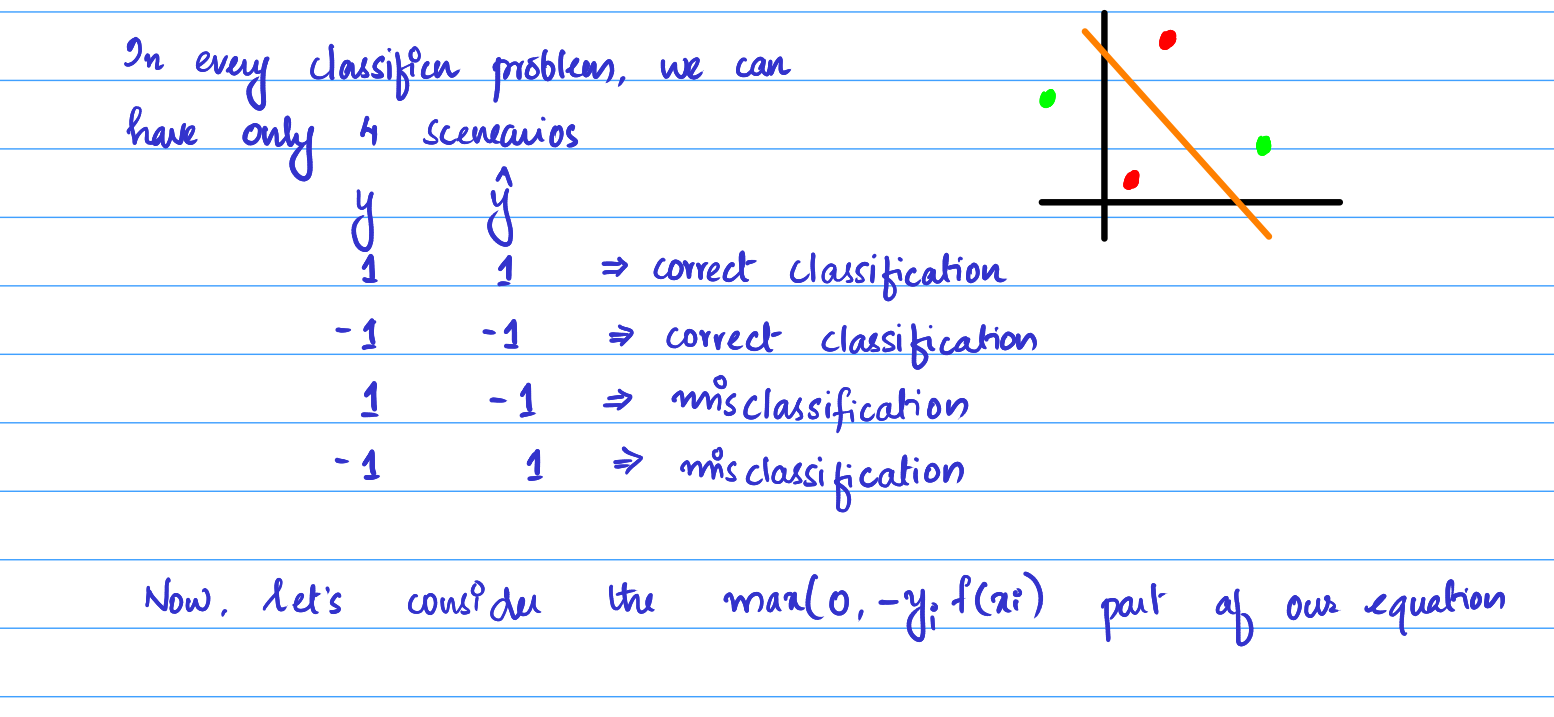 In every classificn problem, we can
have only 4 scenearios
y ŷ
1 1 ⇒ correct classification
-1 -1 ⇒ correct classification
1 -1 ⇒ misclassification
-1 1 ⇒ misclassification
Now, let's consider the max(0, -yᵢ f(xᵢ) part of our equation